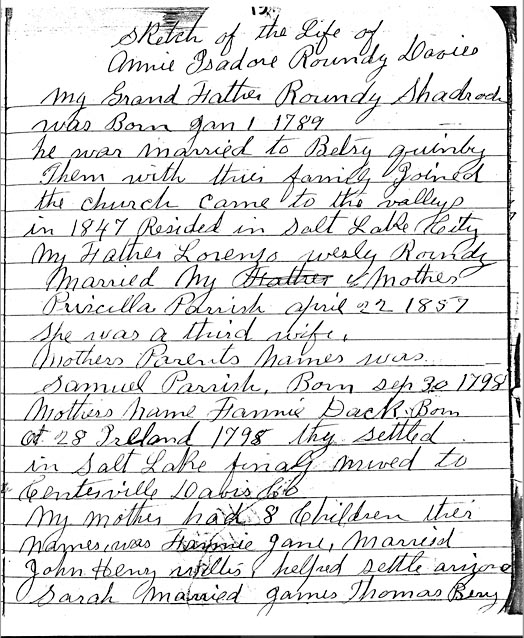 Sketch of the Life of
Annie Isadore Roundy Davies
My Grand Father Roundy Shadrock
was Born Jan 1 1789
he was married to Betsy quinby
Them with thier family Joined
the church came to the valleys
in 1847 Resided in Salt Lake City
My Father Lorenzo wesly Roundy
Married My Father & Mother
Priscilla Parrish april 22 1857
She was a third wife.
Mothers Parents Names was
Samuel Parrish, Born Sep 30 1798
Mothers Name Fannie Dack Born
Oct 28 Ireland 1798 thy settled
in Salt Lake finaly mived to
Centesville Davis Co
My mother had 8 Children thier
Names, was Fannie Jane, Married
John Henry Willis, helped settle arizona
Sarah Married James Thomas Bery